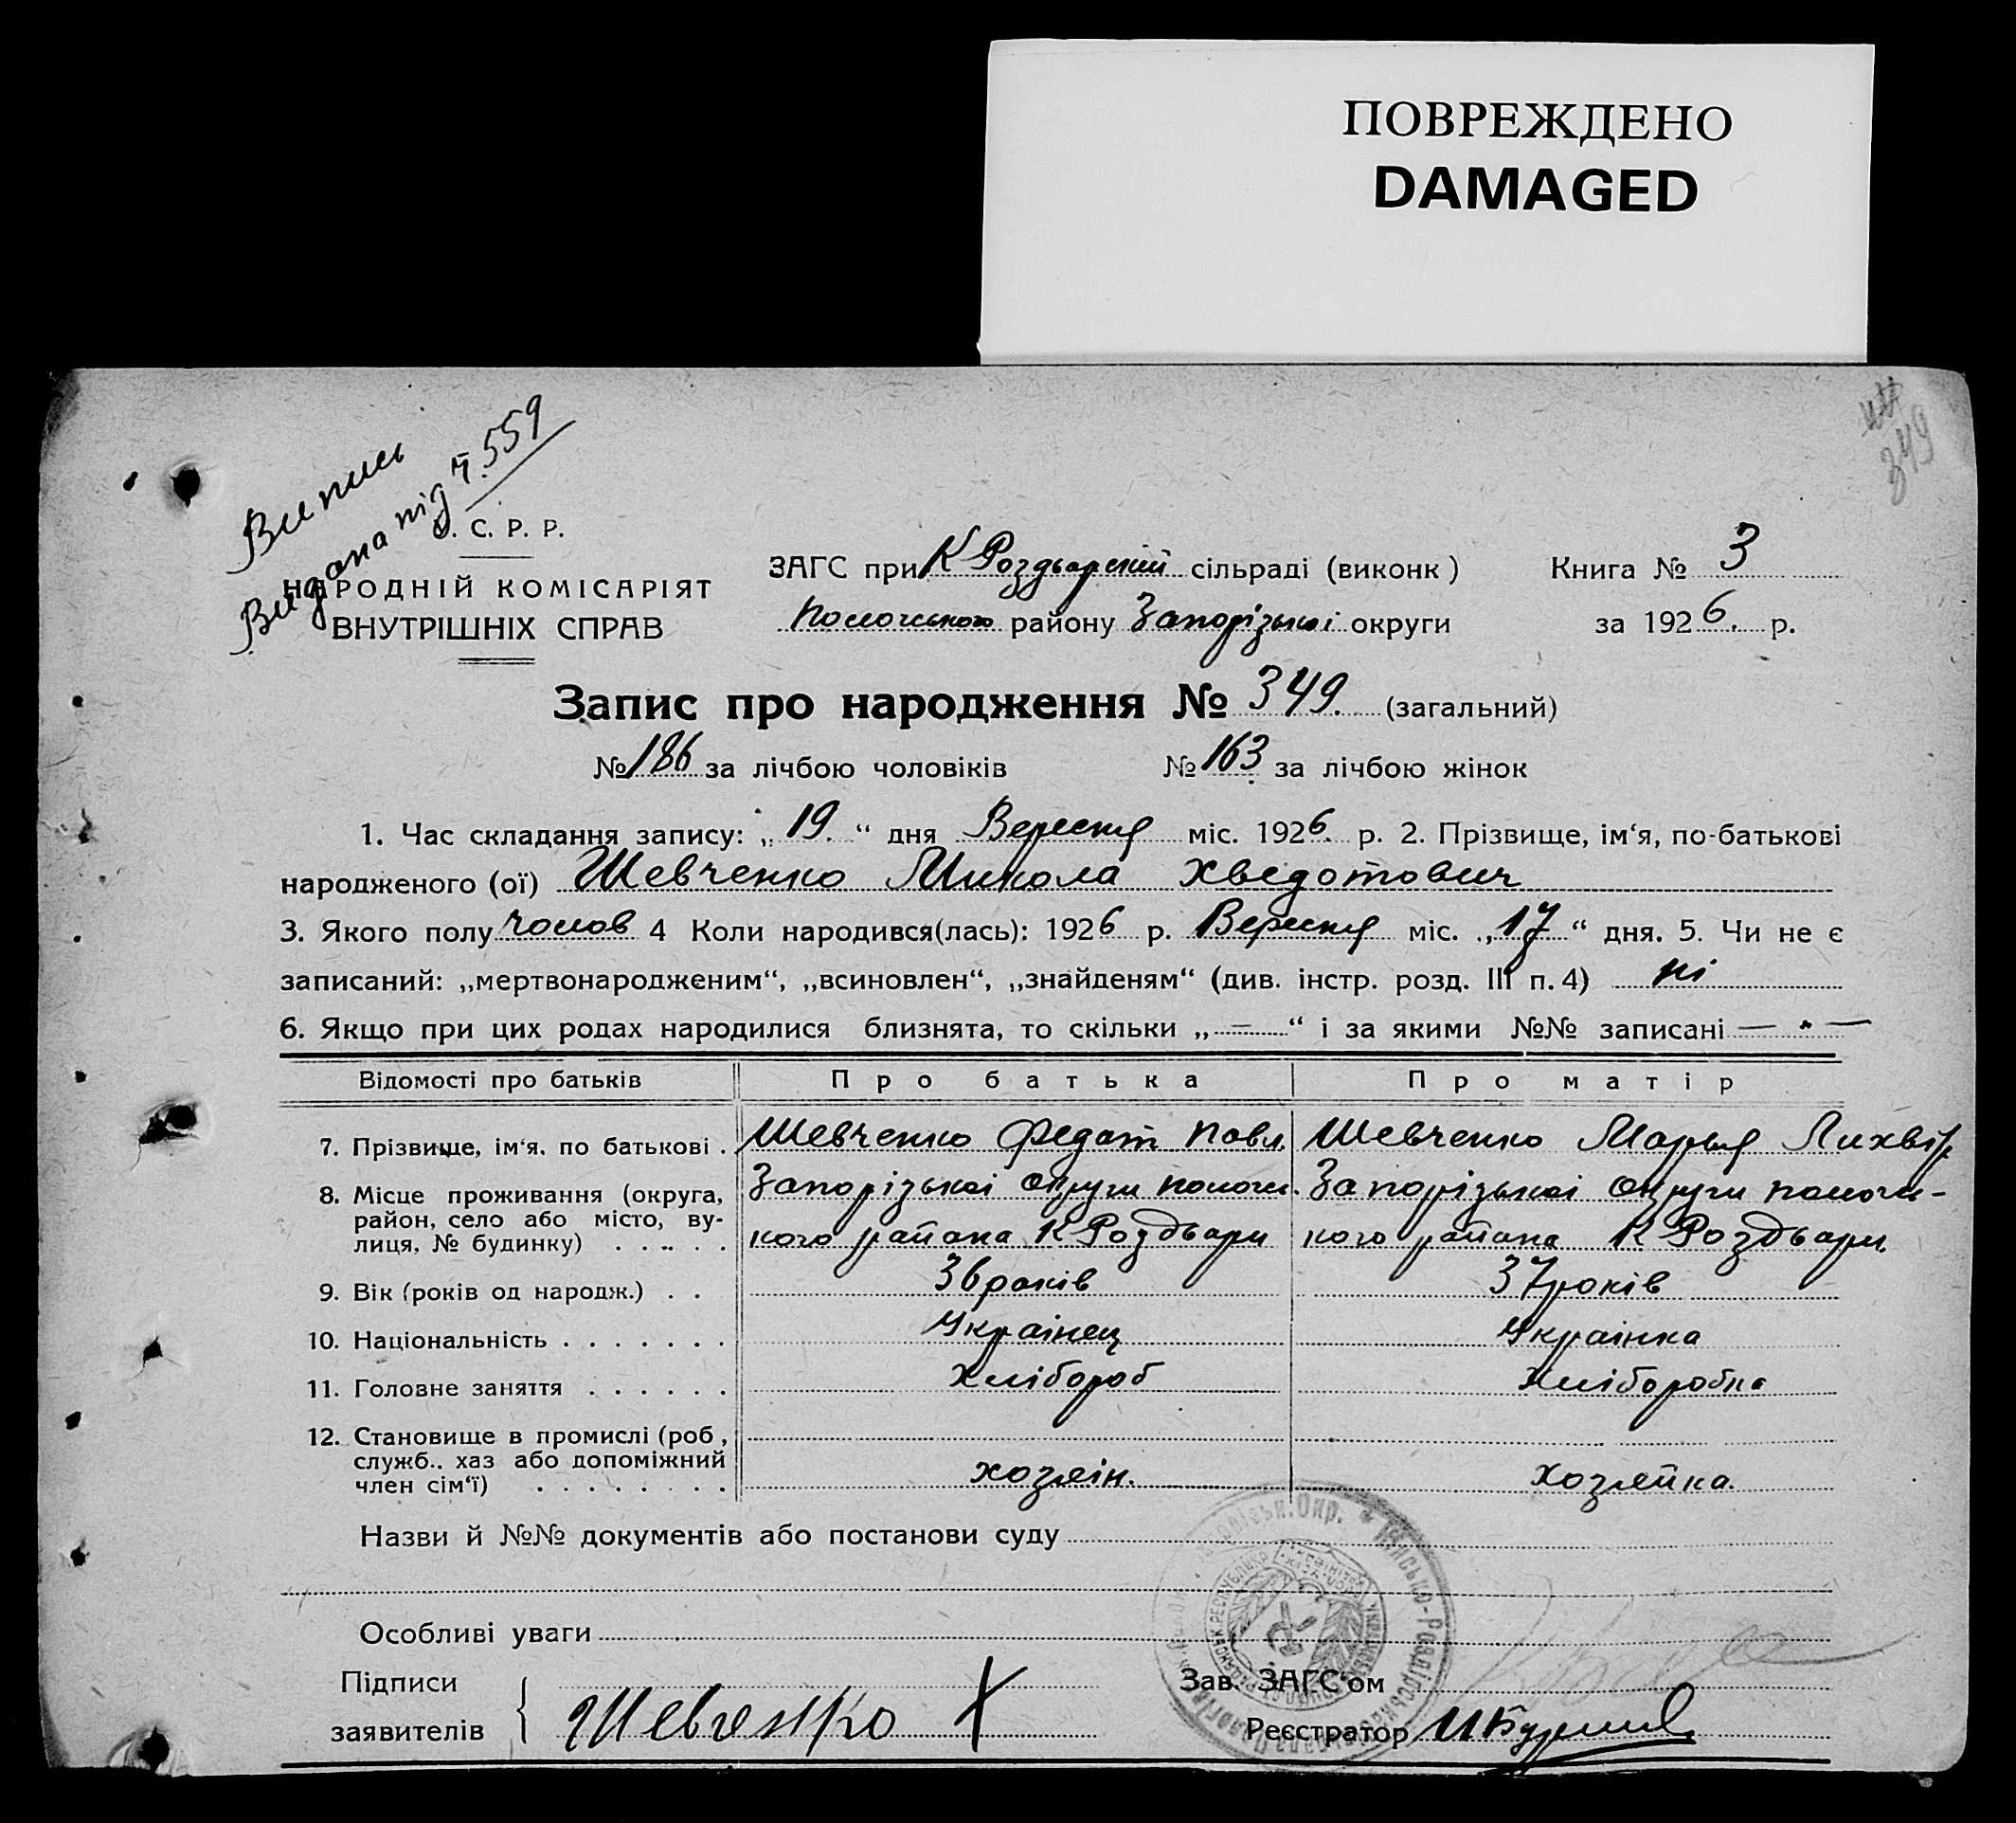 ПОВРЕЖДЕНО
DAMAGED
349
Випись
Видана під ч. 559
У. С. Р. Р.
НАРОДНІЙ КОМІСАРІЯТ
ВНУТРІШНІХ СПРАВ
ЗАГС при К Роздорский сільраді (виконк)
району Запорізькоі округи
Книга № 3
за 1926. р.
Запис про народження № 349. (загальний)
№ 186 за лічбою чоловіків № 163 за лічбою жінок
1. Час складання запису: „19.“ дня Вересня міс. 1926. р. 2. Прізвище, ім‘я, по-батькові
народженого (ої) Шевченко Микола Хведотович
3. Якого полу чолов 4 Коли народився(лась): 1926 р. Вересня міс. „17“ дня. 5. Чи не є
записаний: „мертвонародженим“, „всиновлен“, „знайденям“ (див. інстр. розд. III п. 4) ні
6. Якщо при цих родах народилися близнята, то скільки „—“ і за якими №№ записані — „ —
Відомості про батьків Про батька Про матір
7. Прізвище, ім‘я, по батькові . Шевченко Федот Павл. Шевченко Марья
8. Місце проживання (округа, Запорізькоі округи Запорізькоі округи
район, село або місто, ву-
лиця, № будинку) . . . . . кого района К Роздори кого района К Роздори
9. Вік (років од народж.) . . 36 років 37 років
10. Національність . . . . . . . Украінец Украінка
11. Головне заняття . . . . . . Хлібороб Хліборобка
12. Становище в промислі (роб,
служб., хаз або допоміжний
член сім‘ї) . . . . . . . . хозяін. Хозяйка.
Назви й №№ документів або постанови суду
Особливі уваги
Підписи
заявителів Шевченко X
Зав. ЗАГС‘ом
Реєстратор